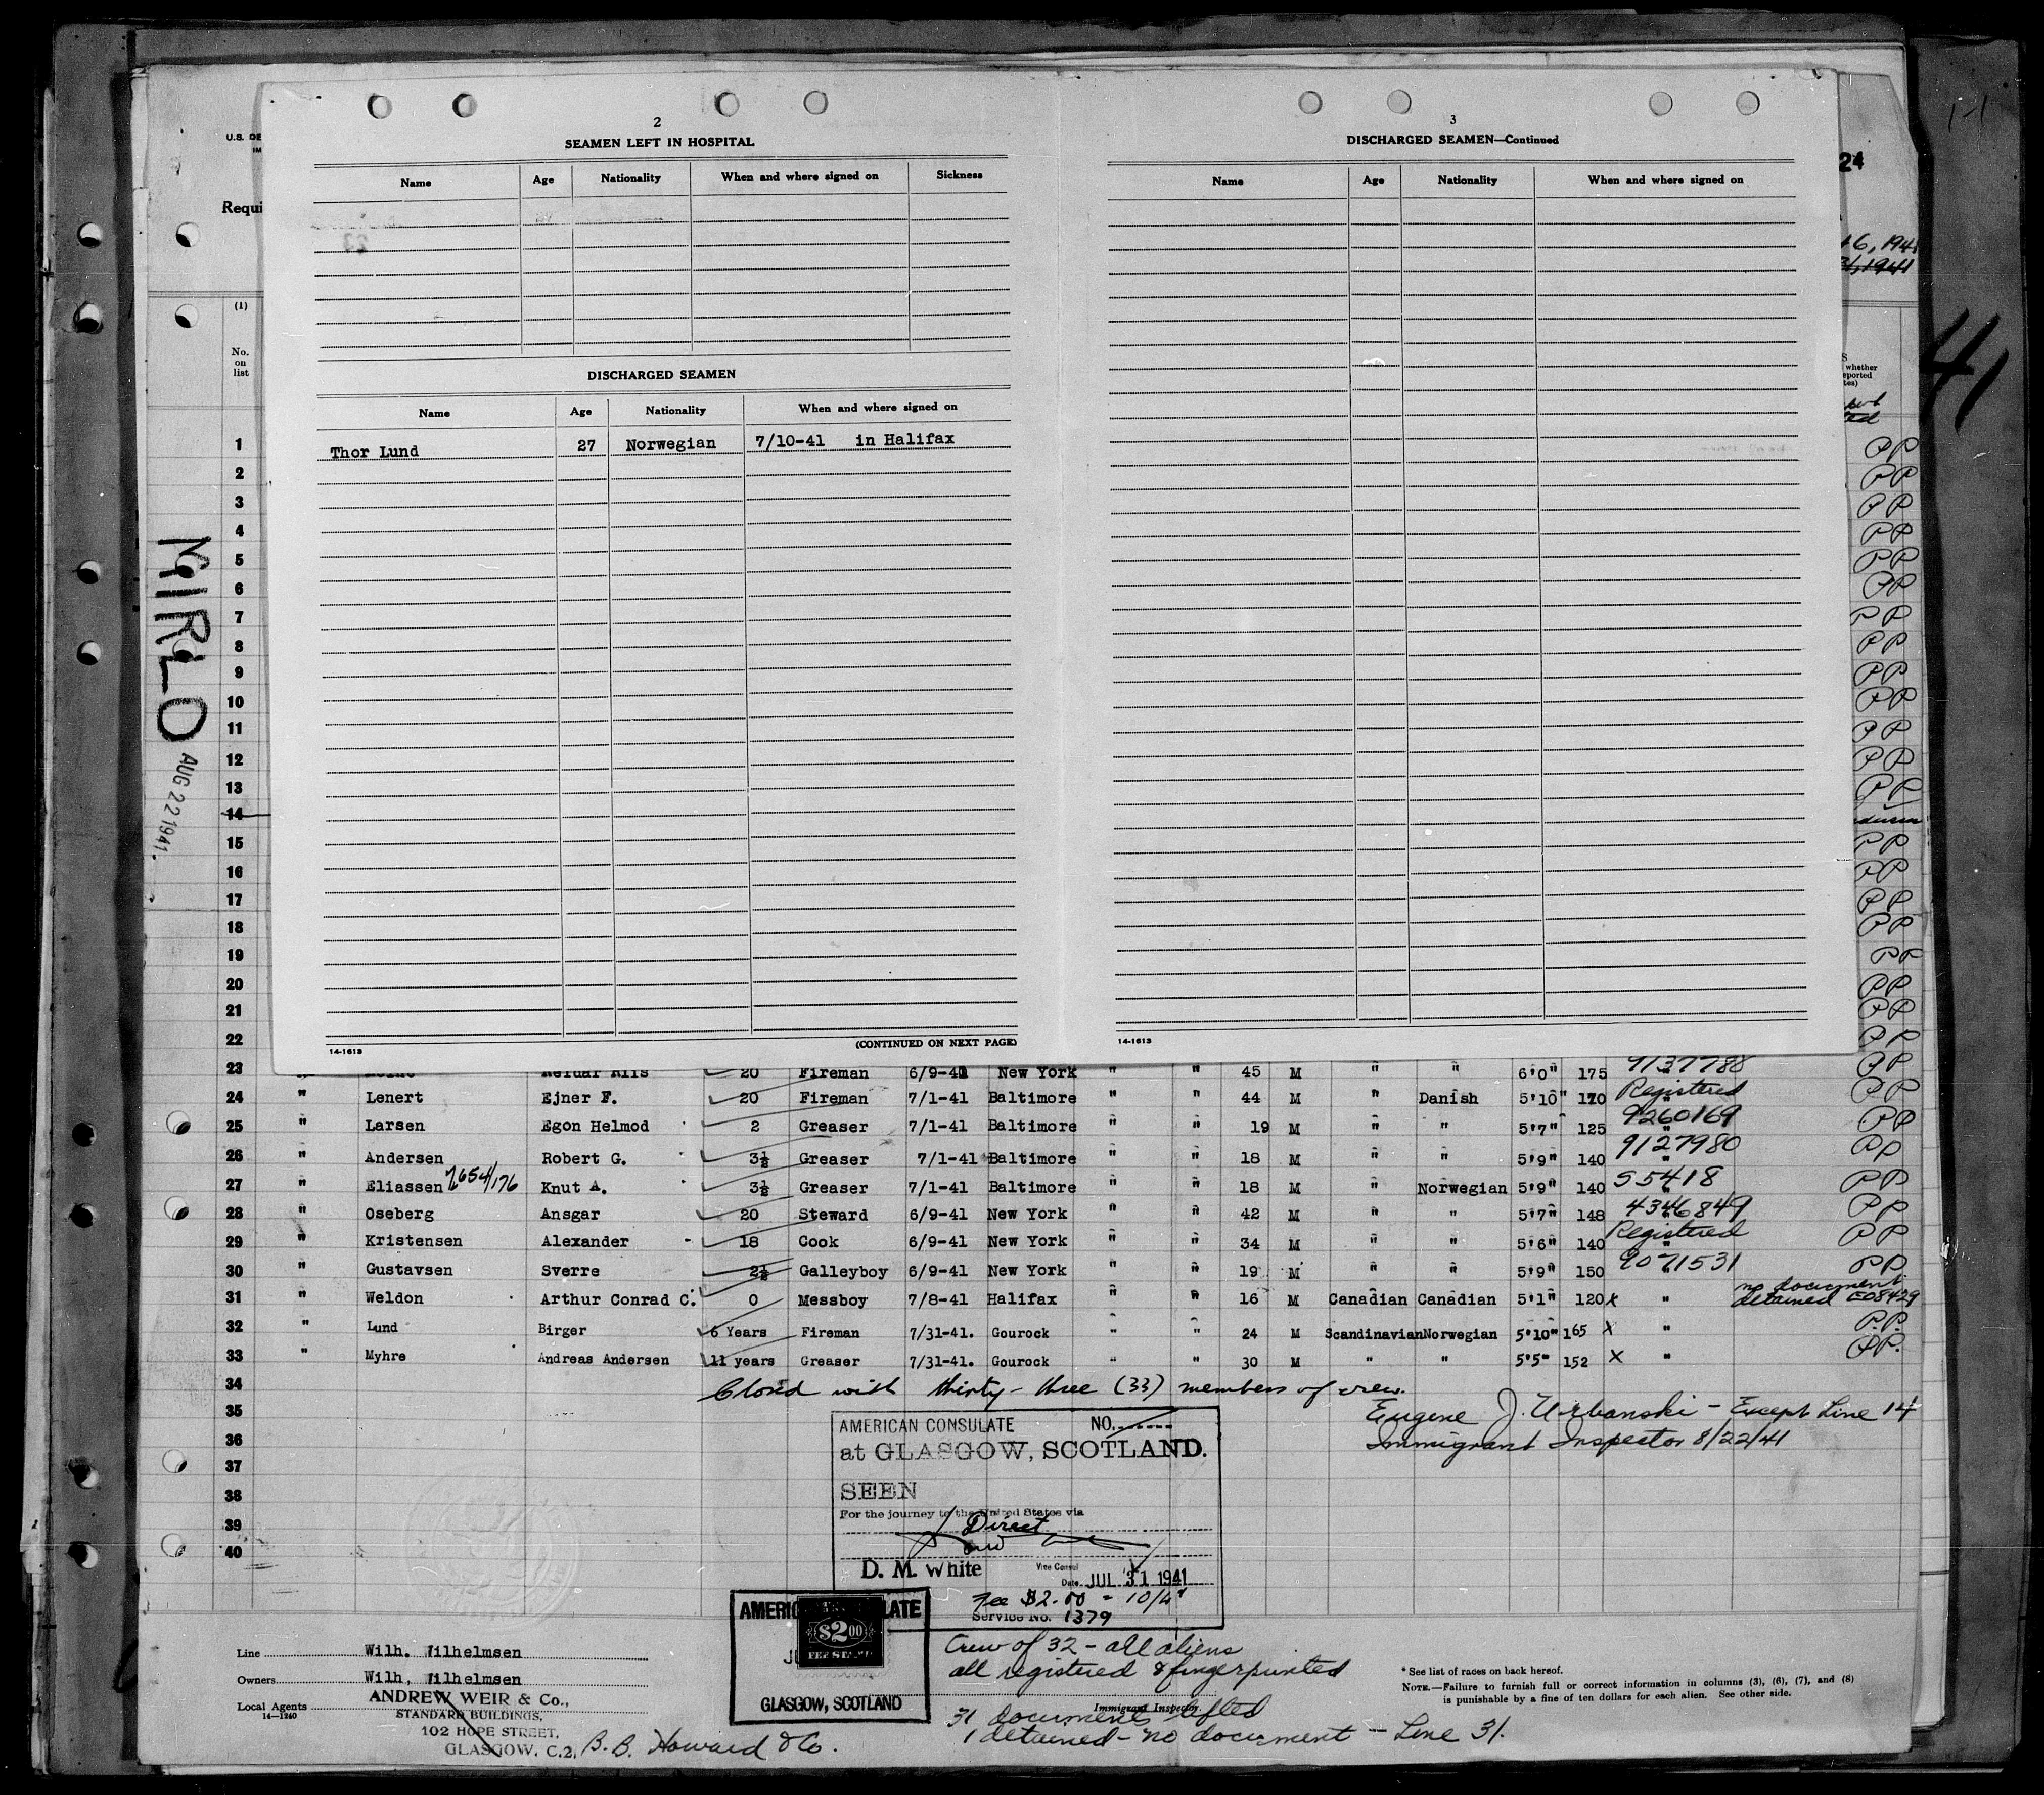 2
SEAMEN LEFT IN HOSPITAL
Name Age Nationality When and where signed on Sickness
DISCHARGED SEAMEN
Name Age Nationality When and where signed on
Thor Lund 27 Norwegian 7/10-41 in Halifax
(CONTINUED ON NEXT PAGE)
14-1613
3
DISCHARGED SEAMEN—Continued
Name Age Nationality When and where signed on
14-1613
U.S. DE
IM
Requi
24
16, 1941
31, 1941
41
(1)
No.
on
list
S
whether
reported
tes)
MIRLO
AUG 22 1941.
1 PP
2 PP
3 PP
4 PP
5 PP
6 PP
7 PP
8 PP
9 PP
10 PP
11 PP
12 PP
13 PP
14
15 PP
16 PP
17 PP
18 PP
19 PP
20 PP
21 PP
22 PP
23 20 Fireman 6/9-41 New York " " 45 M " " 6'0" 175 9137788 PP
24 " Lenert Ejner F. 20 Fireman 7/1-41 Baltimore " " 44 M " Danish 5'10" 170 Registered PP
25 " Larsen Egon Helmod 2 Greaser 7/1-41 Baltimore " " 19 M " " 5'7" 125 9260169 PP
26 " Andersen Robert G. 3½ Greaser 7/1-41 Baltimore " " 18 M " " 5'9" 140 9127980 PP
27 " Eliassen 7654/176 Knut A. 3½ Greaser 7/1-41 Baltimore " " 18 M " Norwegian 5'9" 140 55418 PP
28 " Oseberg Ansgar 20 Steward 6/9-41 New York " " 42 M " " 5'7" 148 4346849 PP
29 " Kristensen Alexander 18 Cook 6/9-41 New York " " 34 M " " 5'6" 140 Registered PP
30 " Gustavsen Sverre 2½ Galleyboy 6/9-41 New York " " 19 M " " 5'9" 150 9071531 PP
31 " Weldon Arthur Conrad C. 0 Messboy 7/8-41 Halifax " " 16 M Canadian Canadian 5'1" 120 x " no document detained E08429
32 " Lund Birger 6 Years Fireman 7/31-41. Gourock " " 24 M Scandinavian Norwegian 5'10" 165 X " P.P.
33 " Myhre Andreas Andersen 11 years Greaser 7/31-41. Gourock " " 30 M " " 5'5" 152 X " P.P.
34 Closed with thirty-three (33) members of crew.
35 Eugene J. Urbanski - Except Line 14
36 Immigrant Inspector 8/22/41
37
38
39
40
AMERICAN CONSULATE NO.
at GLASGOW, SCOTLAND.
SEEN
For the journey to the United States via
Direct
D. M. White Vice Consul
Date JUL 31 1941
Fee $2.00 = 10/4
Service No. 1379
AMERI LATE
$2.00
FEE STAMP
GLASGOW, SCOTLAND
Line Wilh. Wilhelmsen
Owners Wilh, Wilhelmsen
Local Agents ANDREW WEIR & Co.,
14-1240
STANDARD BUILDINGS,
102 HOPE STREET,
GLASGOW. C.2. B. B. Howard & Co.
Crew of 32 - all aliens
all registered & fingerprinted
Immigrant Inspector.
31 documents lifted
1 detained - no document - Line 31.
* See list of races on back hereof.
NOTE.—Failure to furnish full or correct information in columns (3), (6), (7), and (8)
is punishable by a fine of ten dollars for each alien. See other side.